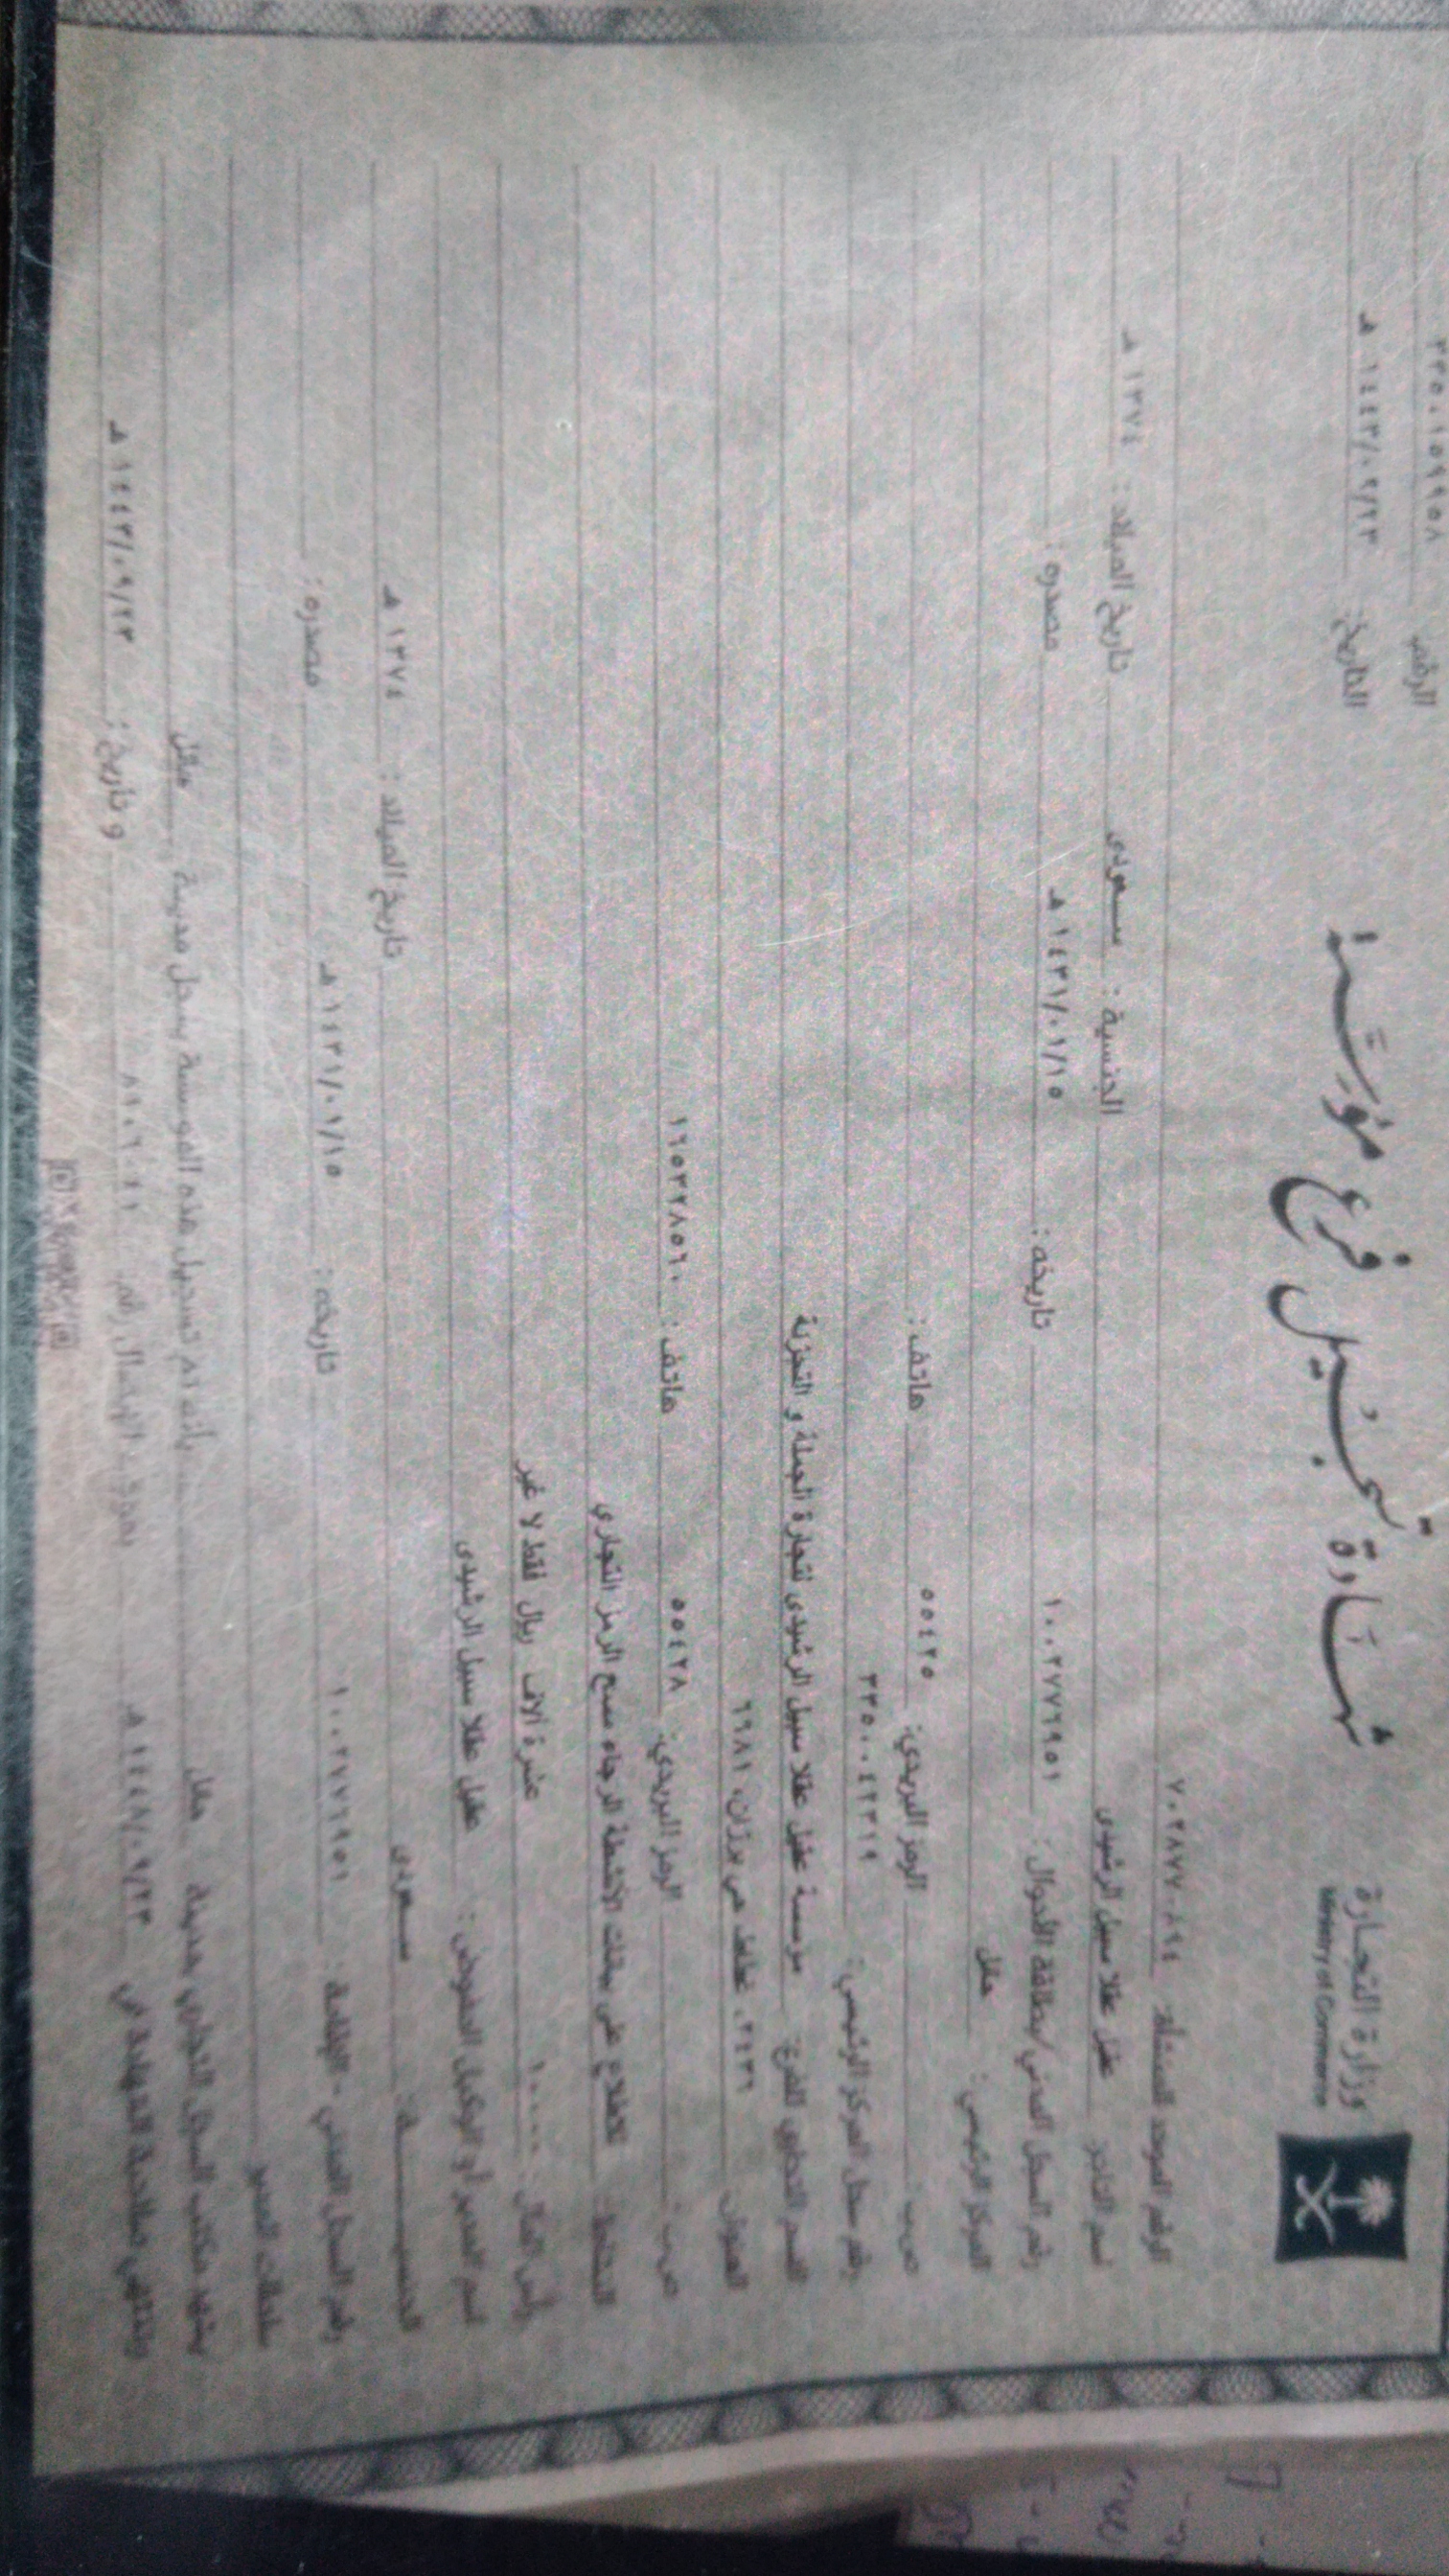 وزارة التجارة
Ministry of Commerce
شهادة تسجيل فرع مؤسسة
الرقم ٣٣٥٠١٥٩٩٥٨
التاريخ: ١٤٤٣/٠٩/٢٣ هـ
الرقم الموحد للمنشأة ٧٠٢٨٧٧٠٨٩٤
اسم التاجر عقيل عقلا سبيل الرشيدى الجنسية: سعودى تاريخ الميلاد: ١٣٧٤ هـ
رقم السجل المدني/بطاقة الأحوال: ١٠٠٢٧٧٦٩٥١ تاريخه: ١٤٣١/٠١/١٥ هـ مصدره:
المركز الرئيسي: حائل
ص.ب: الرمز البريدي: ٥٥٤٢٥ هاتف:
رقم سجل المركز الرئيسي: ٣٣٥٠٠٤٢٣١٩
الاسم التجاري للفرع: مؤسسة عقيل عقلا سبيل الرشيدى لتجارة الجملة و التجزئة
العنوان ٢٤٣٦، غطاط، حي برزان، ٦٩٨١
ص.ب: الرمز البريدي: ٥٥٤٢٨ هاتف: ١٦٥٣٢٨٥٦٠
النشاط: للاطلاع على بيانات الأنشطة الرجاء مسح الرمز التجاري
رأس المال: ١٠٠٠٠ عشرة آلاف ريال فقط لا غير
اسم المدير أو الوكيل المفوض: عقيل عقلا سبيل الرشيدى
الجنسية: سعودى تاريخ الميلاد: ١٣٧٤ هـ
رقم السجل المدني - الإقامة: ١٠٠٢٧٧٦٩٥١ تاريخه: ١٤٣١/٠١/١٥ هـ مصدره:
سلطات المدير
يشهد مكتب السجل التجاري بمدينة حائل بأنه تم تسجيل هذه المؤسسة بسجل مدينة حائل
وتنتهي صلاحية الشهادة في ١٤٤٨/٠٩/٢٣ هـ بموجب الإيصال رقم و تاريخ: ١٤٤٣/٠٩/٢٣ هـ